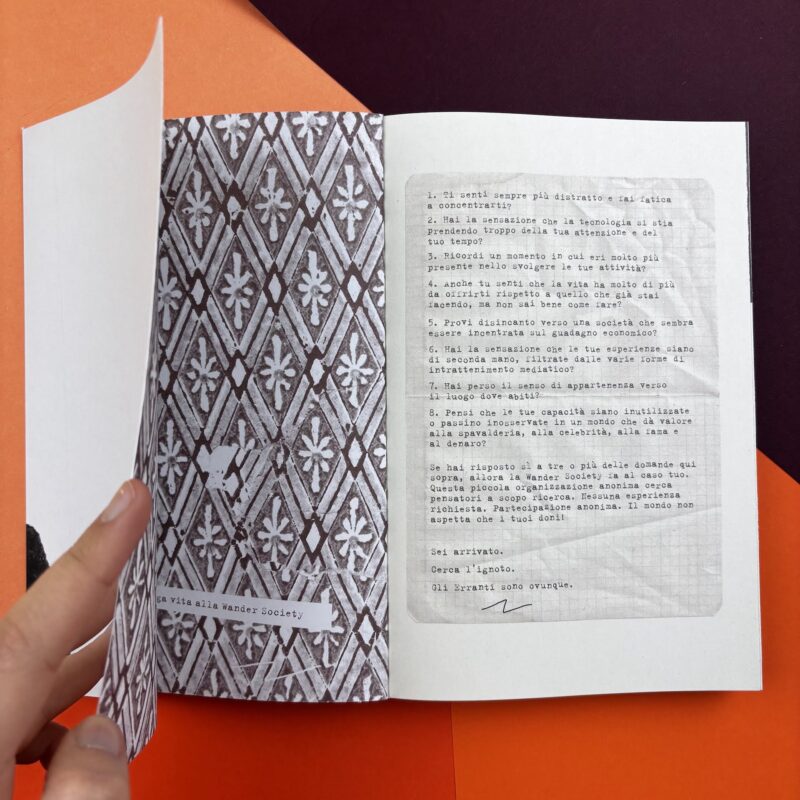 ga vita alla Wander Society
1. Ti senti sempre più distratto e fai fatica
a concentrarti?
2. Hai la sensazione che la tecnologia si stia
prendendo troppo della tua attenzione e del
tuo tempo?
3. Ricordi un momento in cui eri molto più
presente nello svolgere le tue attività?
4. Anche tu senti che la vita ha molto di più
da offrirti rispetto a quello che già stai
facendo, ma non sai bene come fare?
5. Provi disincanto verso una società che sembra
essere incentrata sul guadagno economico?
6. Hai la sensazione che le tue esperienze siano
di seconda mano, filtrate dalle varie forme di
intrattenimento mediatico?
7. Hai perso il senso di appartenenza verso
il luogo dove abiti?
8. Pensi che le tue capacità siano inutilizzate
o passino inosservate in un mondo che dà valore
alla spavalderia, alla celebrità, alla fama e
al denaro?
Se hai risposto sì a tre o più delle domande qui
sopra, allora la Wander Society fa al caso tuo.
Questa piccola organizzazione anonima cerca
pensatori a scopo ricerca. Nessuna esperienza
richiesta. Partecipazione anonima. Il mondo non
aspetta che i tuoi doni!
Sei arrivato.
Cerca l'ignoto.
Gli Erranti sono ovunque.